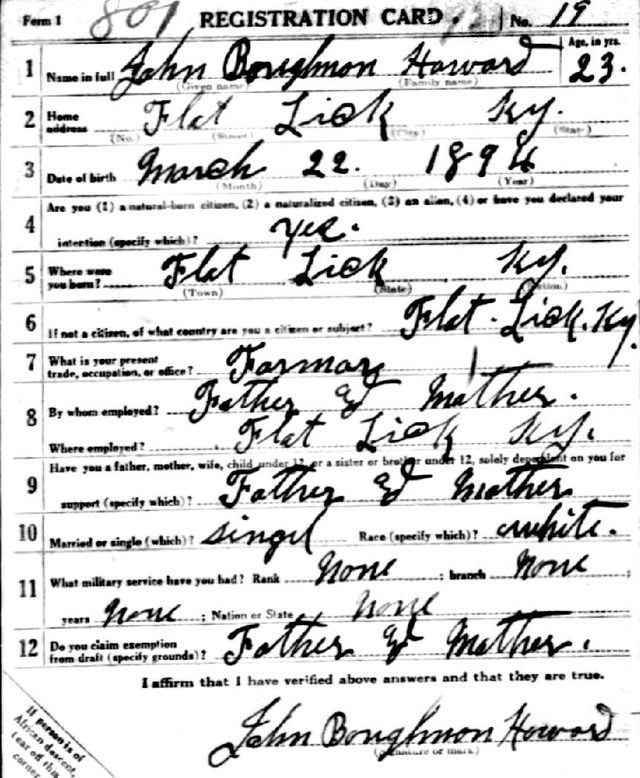 Form 1 801 REGISTRATION CARD. No. 19
1 Name in full John Boughmon Howard Age, in yrs. 23.
(Given name) (Family name)
2 Home address Flat Lick Ky.
(No.) (Street) (City) (State)
3 Date of birth March 22. 1894
(Month) (Day) (Year)
4 Are you (1) a natural-born citizen, (2) a naturalized citizen, (3) an alien, (4) or have you declared your
intention (specify which)? yes.
5 Where were you born? Flat Lick Ky.
(Town) (State) (Nation)
6 If not a citizen, of what country are you a citizen or subject? Flat. Lick. Ky.
7 What is your present trade, occupation, or office? Farmar
8 By whom employed? Father & Mother.
Where employed? Flat Lick Ky.
9 Have you a father, mother, wife, child under 12, or a sister or brother under 12, solely dependent on you for
support (specify which)? Father & Mother
10 Married or single (which)? singel Race (specify which)? white.
11 What military service have you had? Rank None ; branch None ;
years None ; Nation or State None
12 Do you claim exemption from draft (specify grounds)? Father & Mother.
I affirm that I have verified above answers and that they are true.
John Boughmon Howard
(Signature or mark)
If person is of
African descent,
tear off this
corner